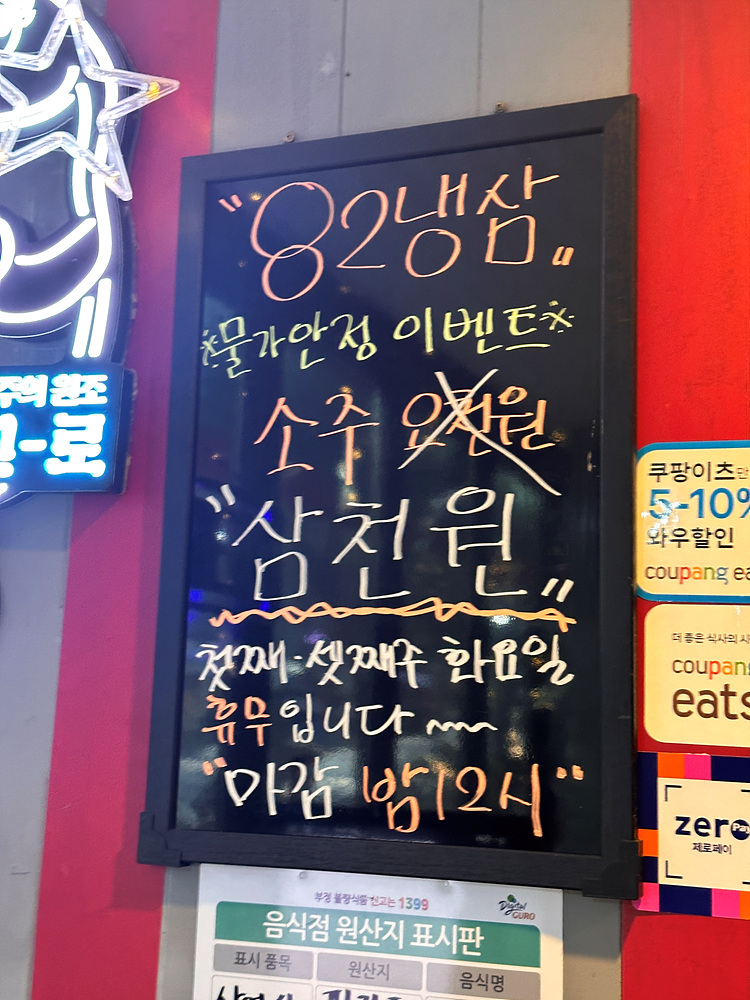 "82냉삼"
물가안정 이벤트
소주 오천원
"삼천원"
첫째·셋째주 화요일
휴무입니다~
"마감 밤12시"
주의 원조
-로
쿠팡이츠만
5-10%
와우할인
coupang ea
더 좋은 식사의 시
coupang
eats
zero Pay
제로페이
부정 불량식품 신고는 1399
Digital GURO
음식점 원산지 표시판
표시 품목 원산지 음식명